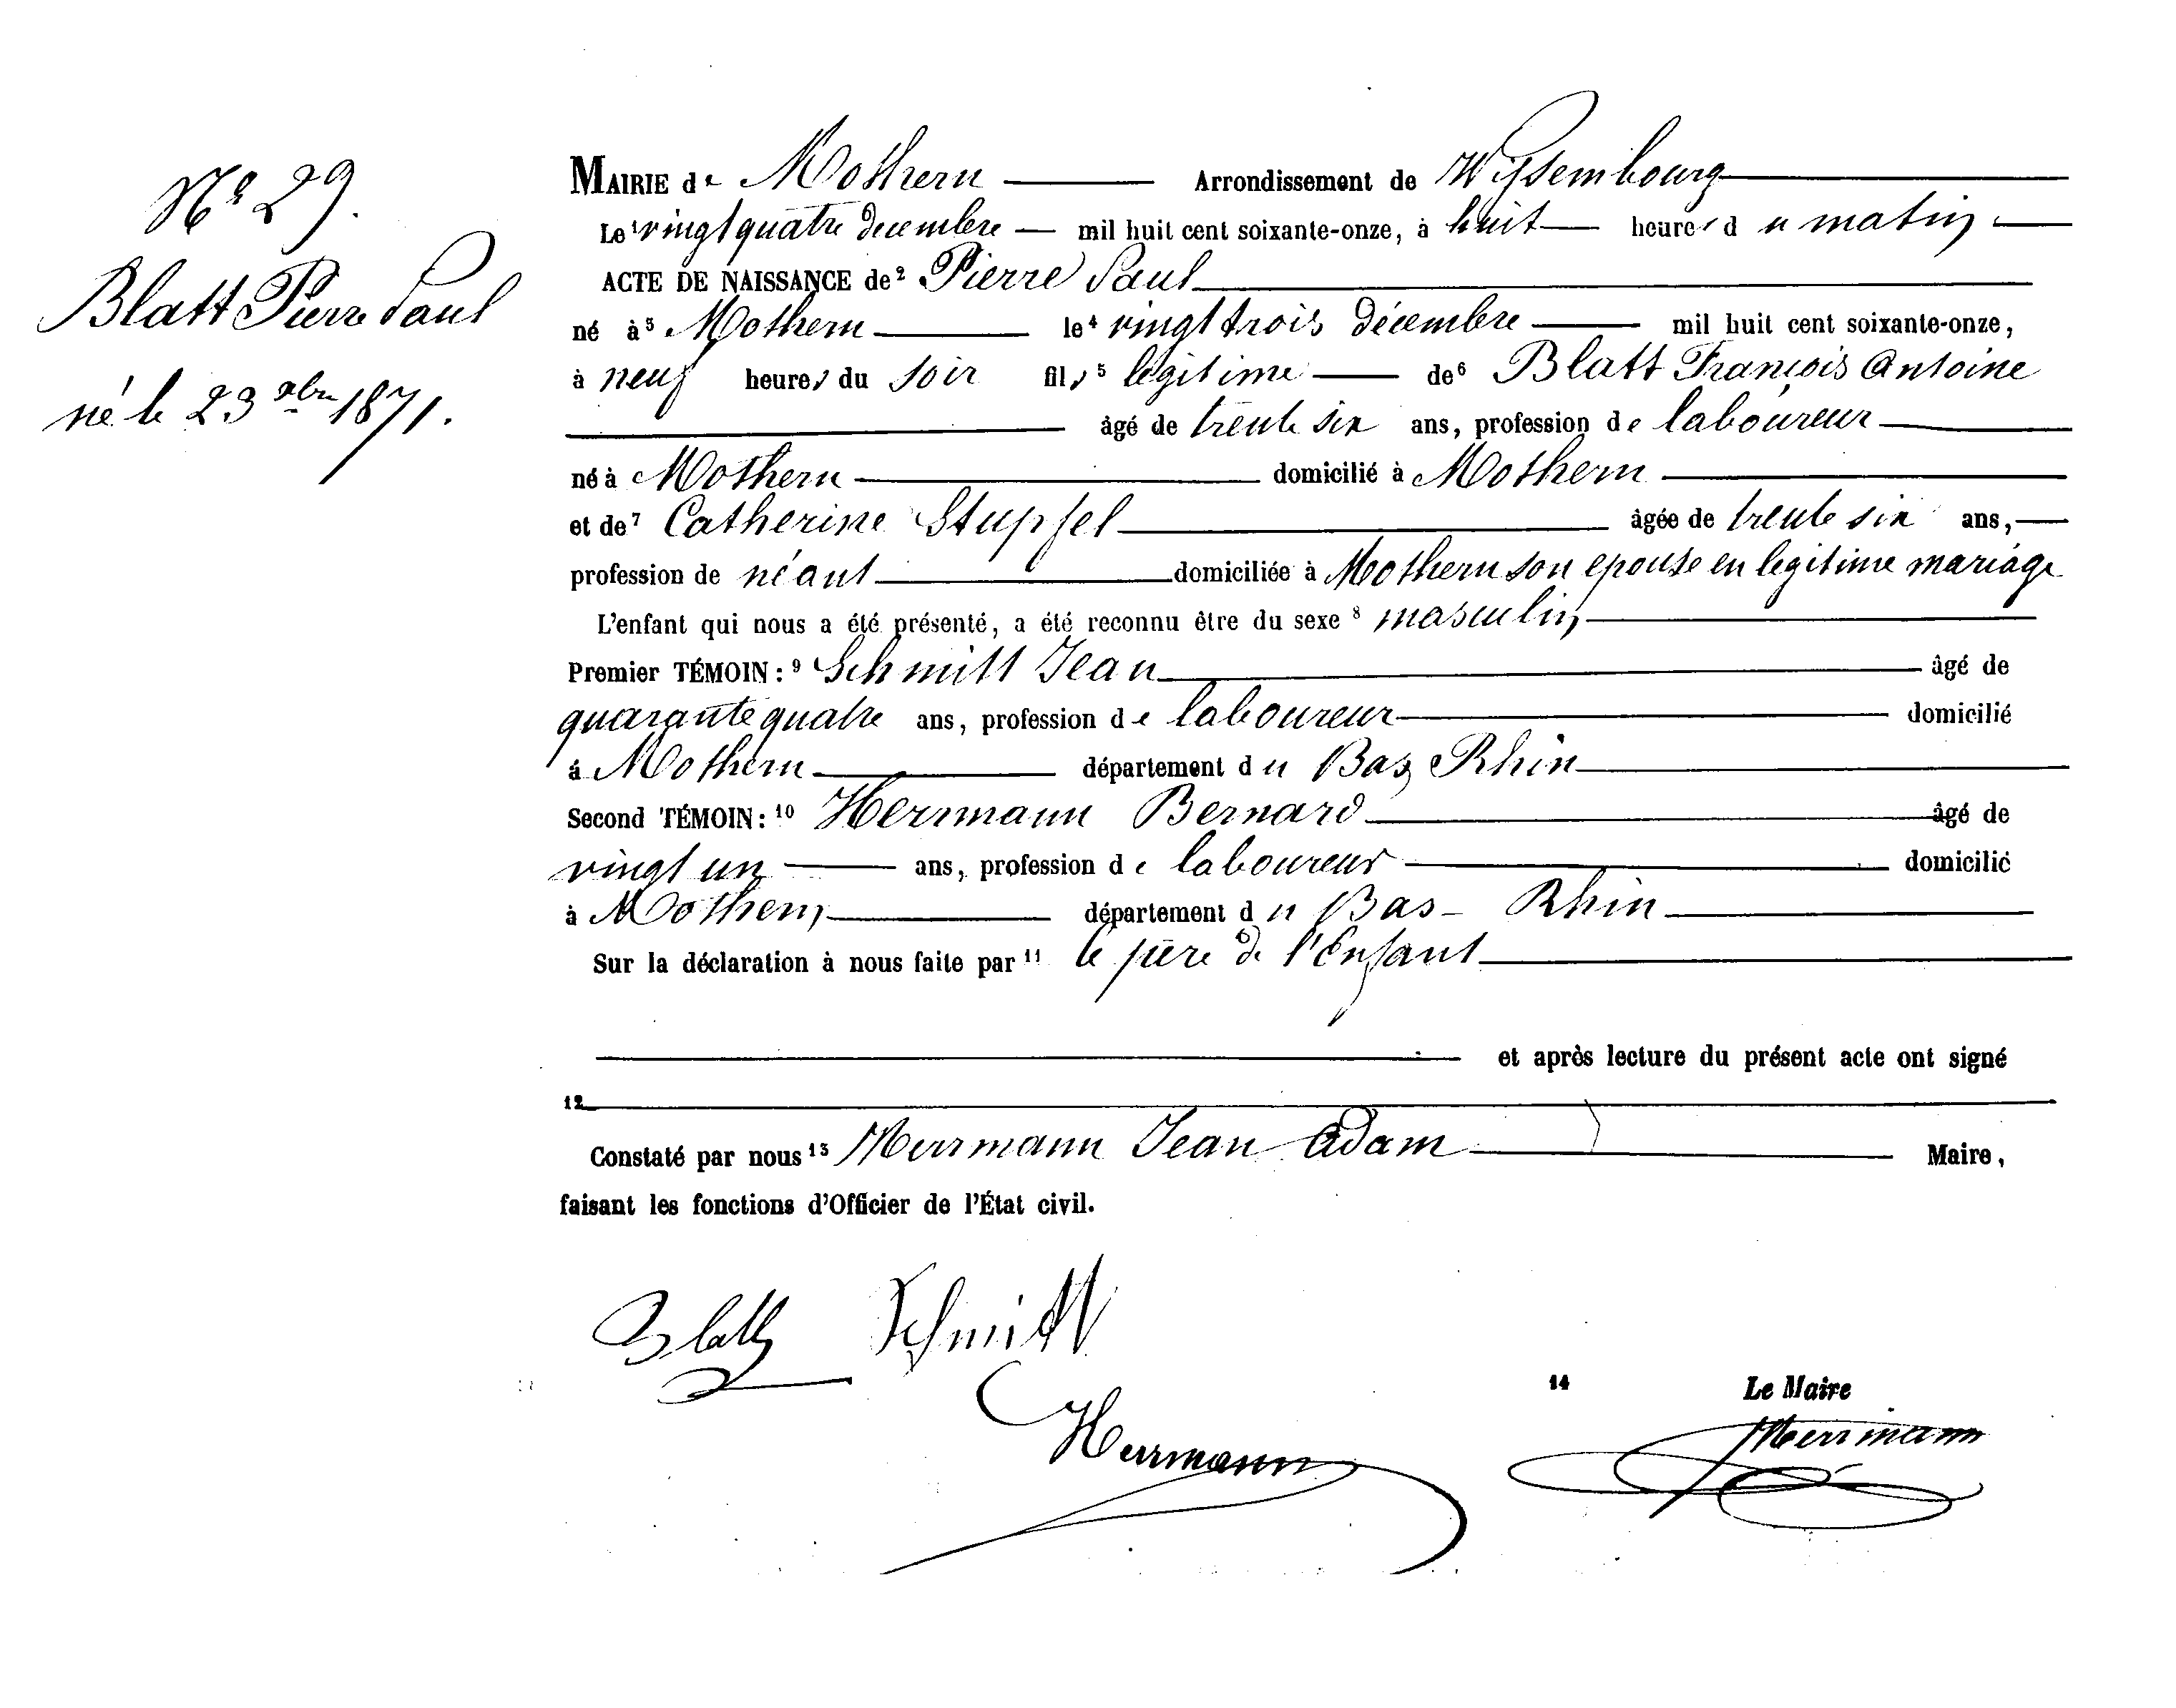 Nº 29.
Blatt Pierre Paul
né le 23 xbre 1871.
MAIRIE de Mothern Arrondissement de Wissembourg
Le 1 vingt quatre decembre mil huit cent soixante-onze, à huit heures du matin
ACTE DE NAISSANCE de 2 Pierre Paul
né à 3 Mothern le 4 vingt trois décembre mil huit cent soixante-onze,
à neuf heures du soir fils 5 légitime de 6 Blatt François Antoine
âgé de trente six ans, profession de laboureur
né à Mothern domicilié à Mothern
et de 7 Catherine Stupfel âgée de trente six ans,
profession de néant domiciliée à Mothern son epouse en legitime mariage
L'enfant qui nous a été présenté, a été reconnu être du sexe 8 masculin
Premier TÉMOIN : 9 Schmitt Jean âgé de
quarante quatre ans, profession de laboureur domicilié
à Mothern département du Bas Rhin
Second TÉMOIN : 10 Herrmann Bernard âgé de
vingt un ans, profession de laboureur domicilié
à Mothern département du Bas-Rhin
Sur la déclaration à nous faite par 11 le père de l'Enfant
et après lecture du présent acte ont signé
12
Constaté par nous 13 Herrmann Jean Adam Maire,
faisant les fonctions d'Officier de l'État civil.
Blatt Schmitt
14 Le Maire
Herrmann Herrmann